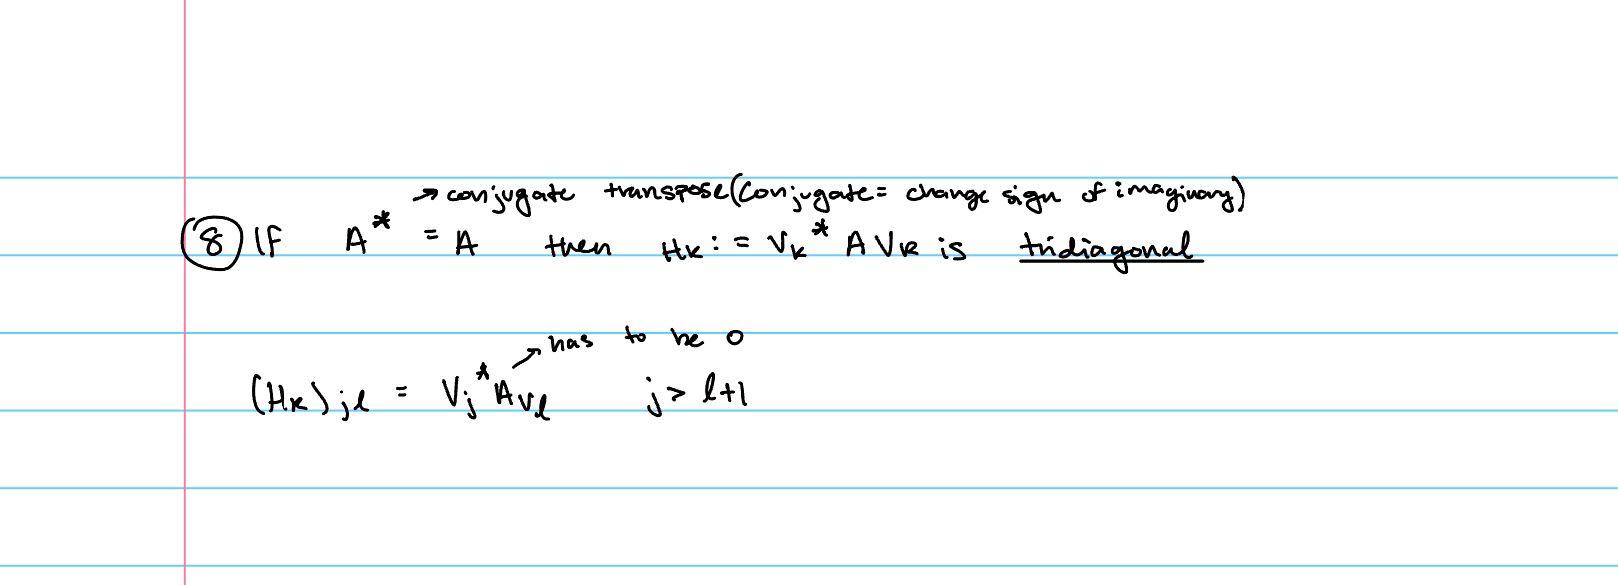 → conjugate transpose (conjugate = change sign of imaginary)
⑧ If A* = A then Hk := Vk* A Vk is tridiagonal
→ has to be 0
(Hk)jl = Vj* A vl j > l+1